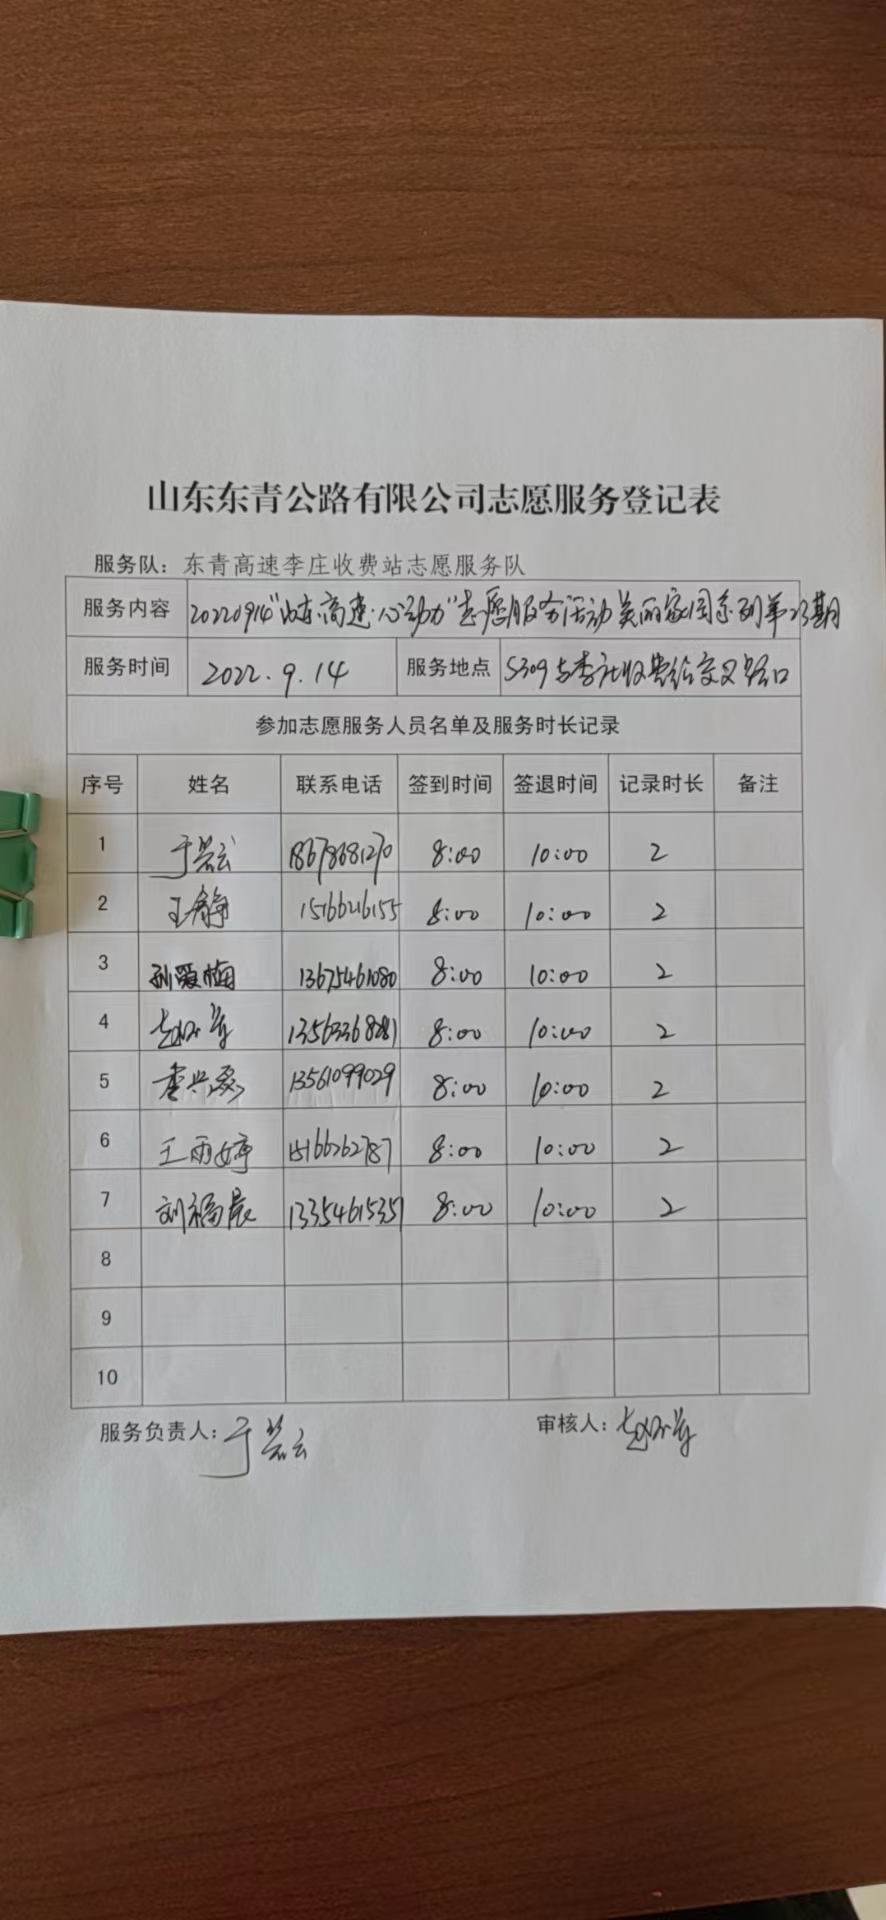 山东东青公路有限公司志愿服务登记表
服务队：东青高速李庄收费站志愿服务队
服务内容 20220914"山东高速·心动力"志愿服务活动美丽家园系列第23期
服务时间 2022.9.14 服务地点 S309与李庄收费站交叉路口
参加志愿服务人员名单及服务时长记录
序号 姓名 联系电话 签到时间 签退时间 记录时长 备注
1 于芸云 18678681270 8:00 10:00 2
2 王静 15166216155 8:00 10:00 2
3 孙爱梅 13675461080 8:00 10:00 2
4 8:00 10:00 2
5 13561099029 8:00 10:00 2
6 王雨婷 15166262787 8:00 10:00 2
7 刘福晨 13354615351 8:00 10:00 2
8
9
10
服务负责人：于芸云 审核人：